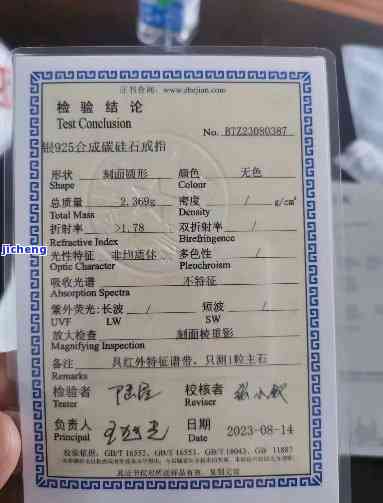 证书查询: www.zbcjian.com
检验结论
Test Conclusion
No. BTZ23080387
银925合成碳硅石戒指
形状 刻面圆形 颜色 无色
Shape Colour
总质量 2.369g 密度 / g/cm³
Total Mass Density
折射率 >1.78 双折射率 /
Refractive Index Birefringence
光性特征 非均质体 多色性 /
Optic Character Pleochroism
吸收光谱 不特征
Absorption Spectra
紫外荧光:长波 / 短波 /
UVF LW SW
放大检查 刻面棱重影
Magnifying Inspection
备注 具红外特征谱带，只测1粒主石
Remarks
检验者 校核者
Tester Reviser
负责人 日期
Principal Date 2023-08-14
检验依据: GB/T 16552、GB/T 16553、GB/T 18043、GB 11887
jicheng